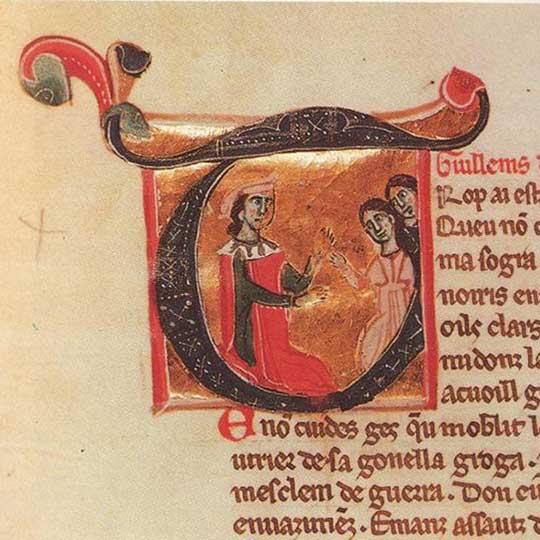 Guillems
Rop ai est
Queu nō c
ma sogra
noiris en
oils clars
midonz la
acuoill g
E nō cuides ges qu mo blit l
utrier de sa gonella groga.
mesclem de guerra. Don
Emanz assaut d